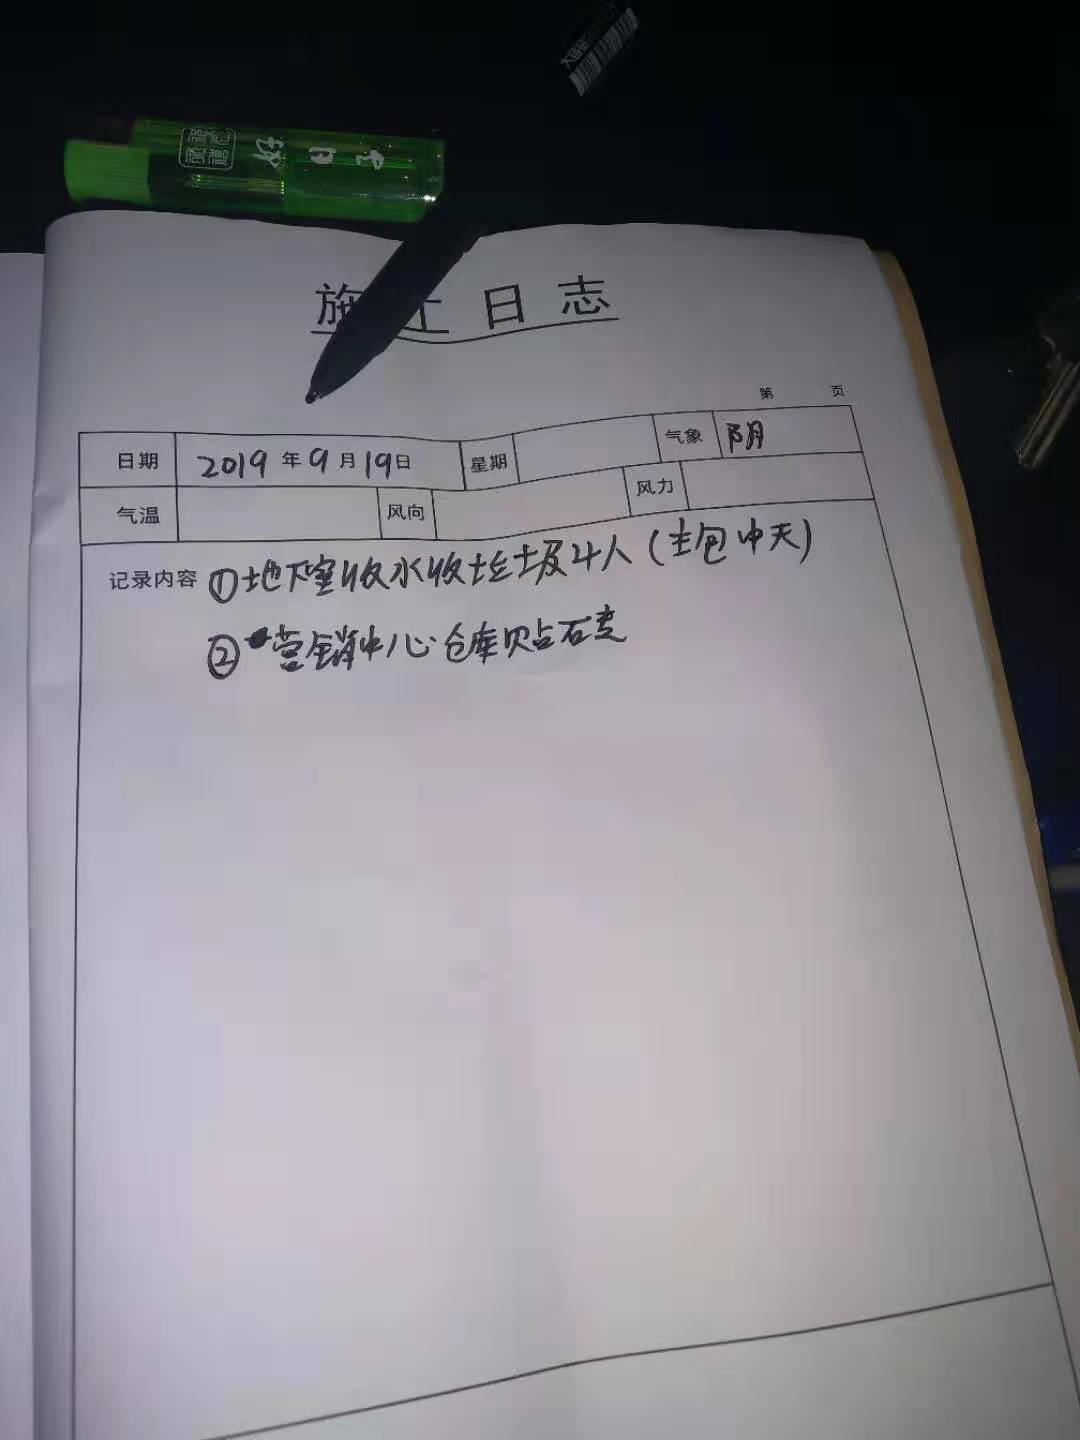 好日
施工日志
第 页
日期 2019年9月19日 星期 气象 阴
气温 风向 风力
记录内容 ①地下室收水收垃圾4人(主包中天)
②营销中心仓库贴石